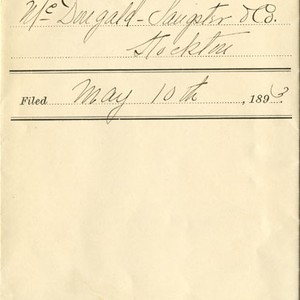 McDougald-Sangster & Co.
Stockton
Filed May 10th, 1896